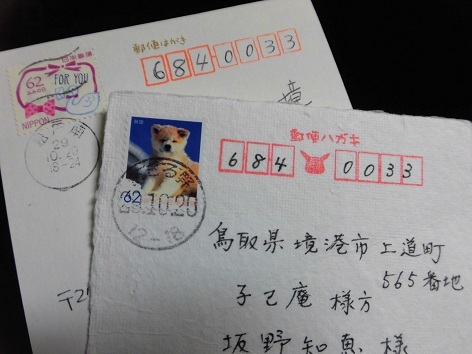 日本郵便
62
FOR YOU
NIPPON
29
郵便はがき
6840033
境
〒2
郵便ハガキ
684 0033
62
29.10.20
12-18
鳥取県境港市上道町
565番地
子己庵 様方
坂野知恵様